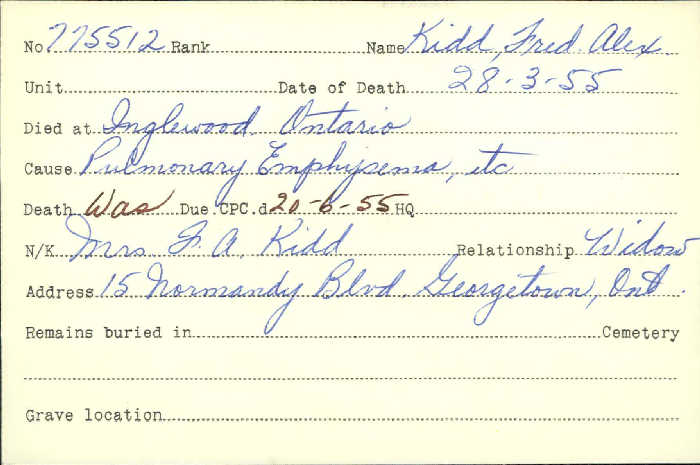 No 775512 Rank Name Kidd, Fred. Alex
Unit Date of Death 28-3-55
Died at Inglewood Ontario
Cause Pulmonary Emphysema, etc
Death Was Due CPC.d 20-6-55 HQ
N/K Mrs F. A. Kidd Relationship Widow
Address 15 Normandy Blvd. Georgetown, Ont.
Remains buried in Cemetery
Grave location